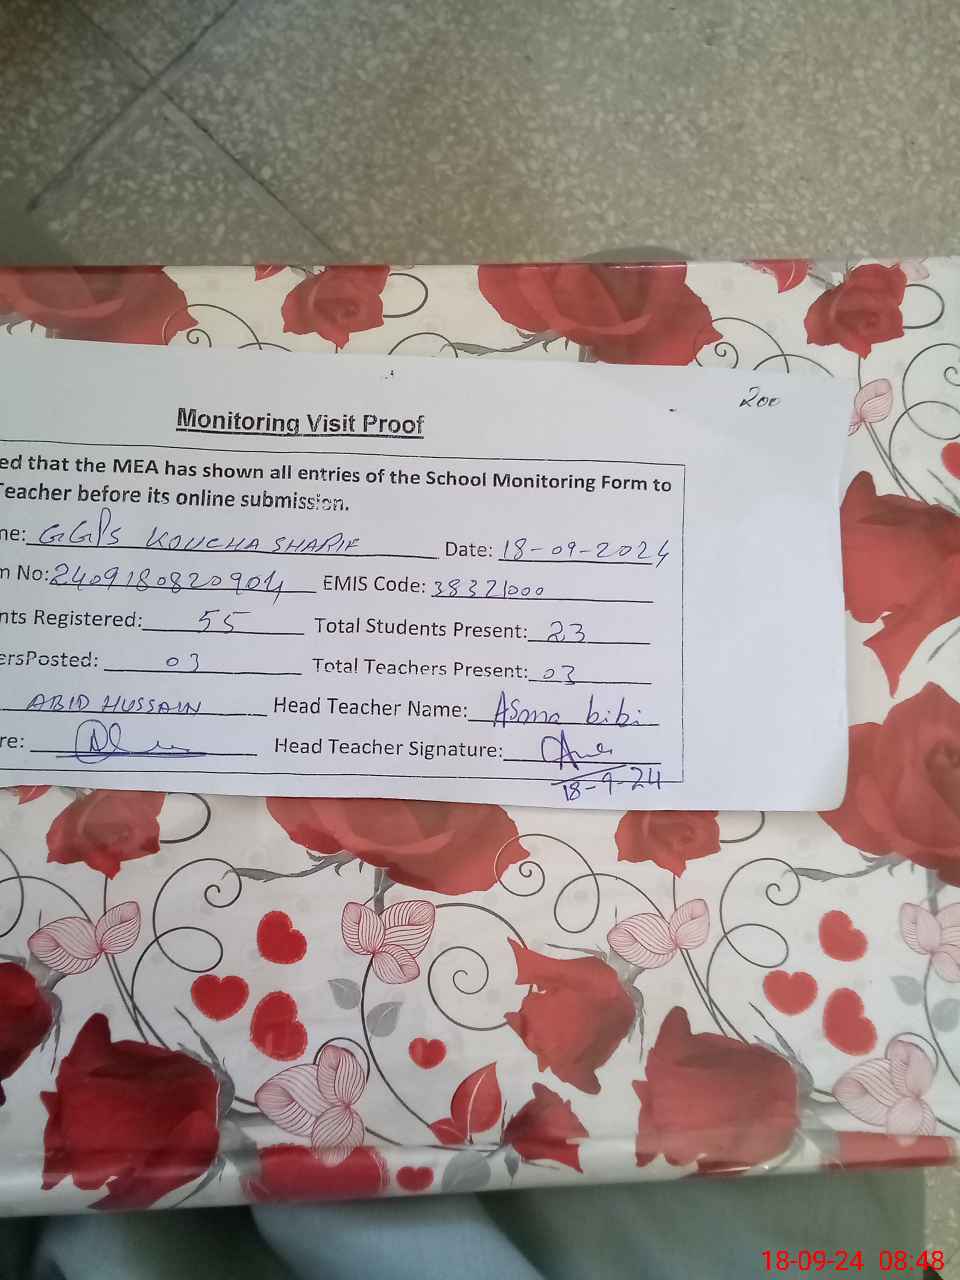 200
Monitoring Visit Proof
ed that the MEA has shown all entries of the School Monitoring Form to
Teacher before its online submission.
ne: GGPS KOUCHA SHARIF Date: 18-09-2024
n No: 2409180820904 EMIS Code: 38321000
nts Registered: 55 Total Students Present: 23
ersPosted: 03 Total Teachers Present: 03
ABID HUSSAIN Head Teacher Name: Asma bibi
re: Head Teacher Signature:
18-9-24
18-09-24 08:48